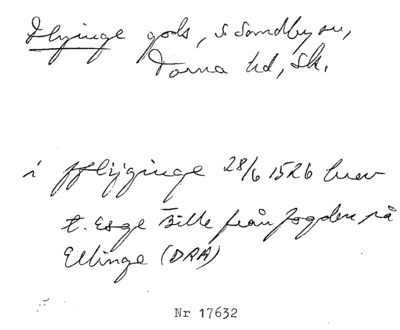 Flyinge gods, S Sandby sn,
Torna hd, Sk.
i fflyginge 28/6 1526 brev
t. Esge Bille från fogden på
Ellinge (DRA)
Nr 17632